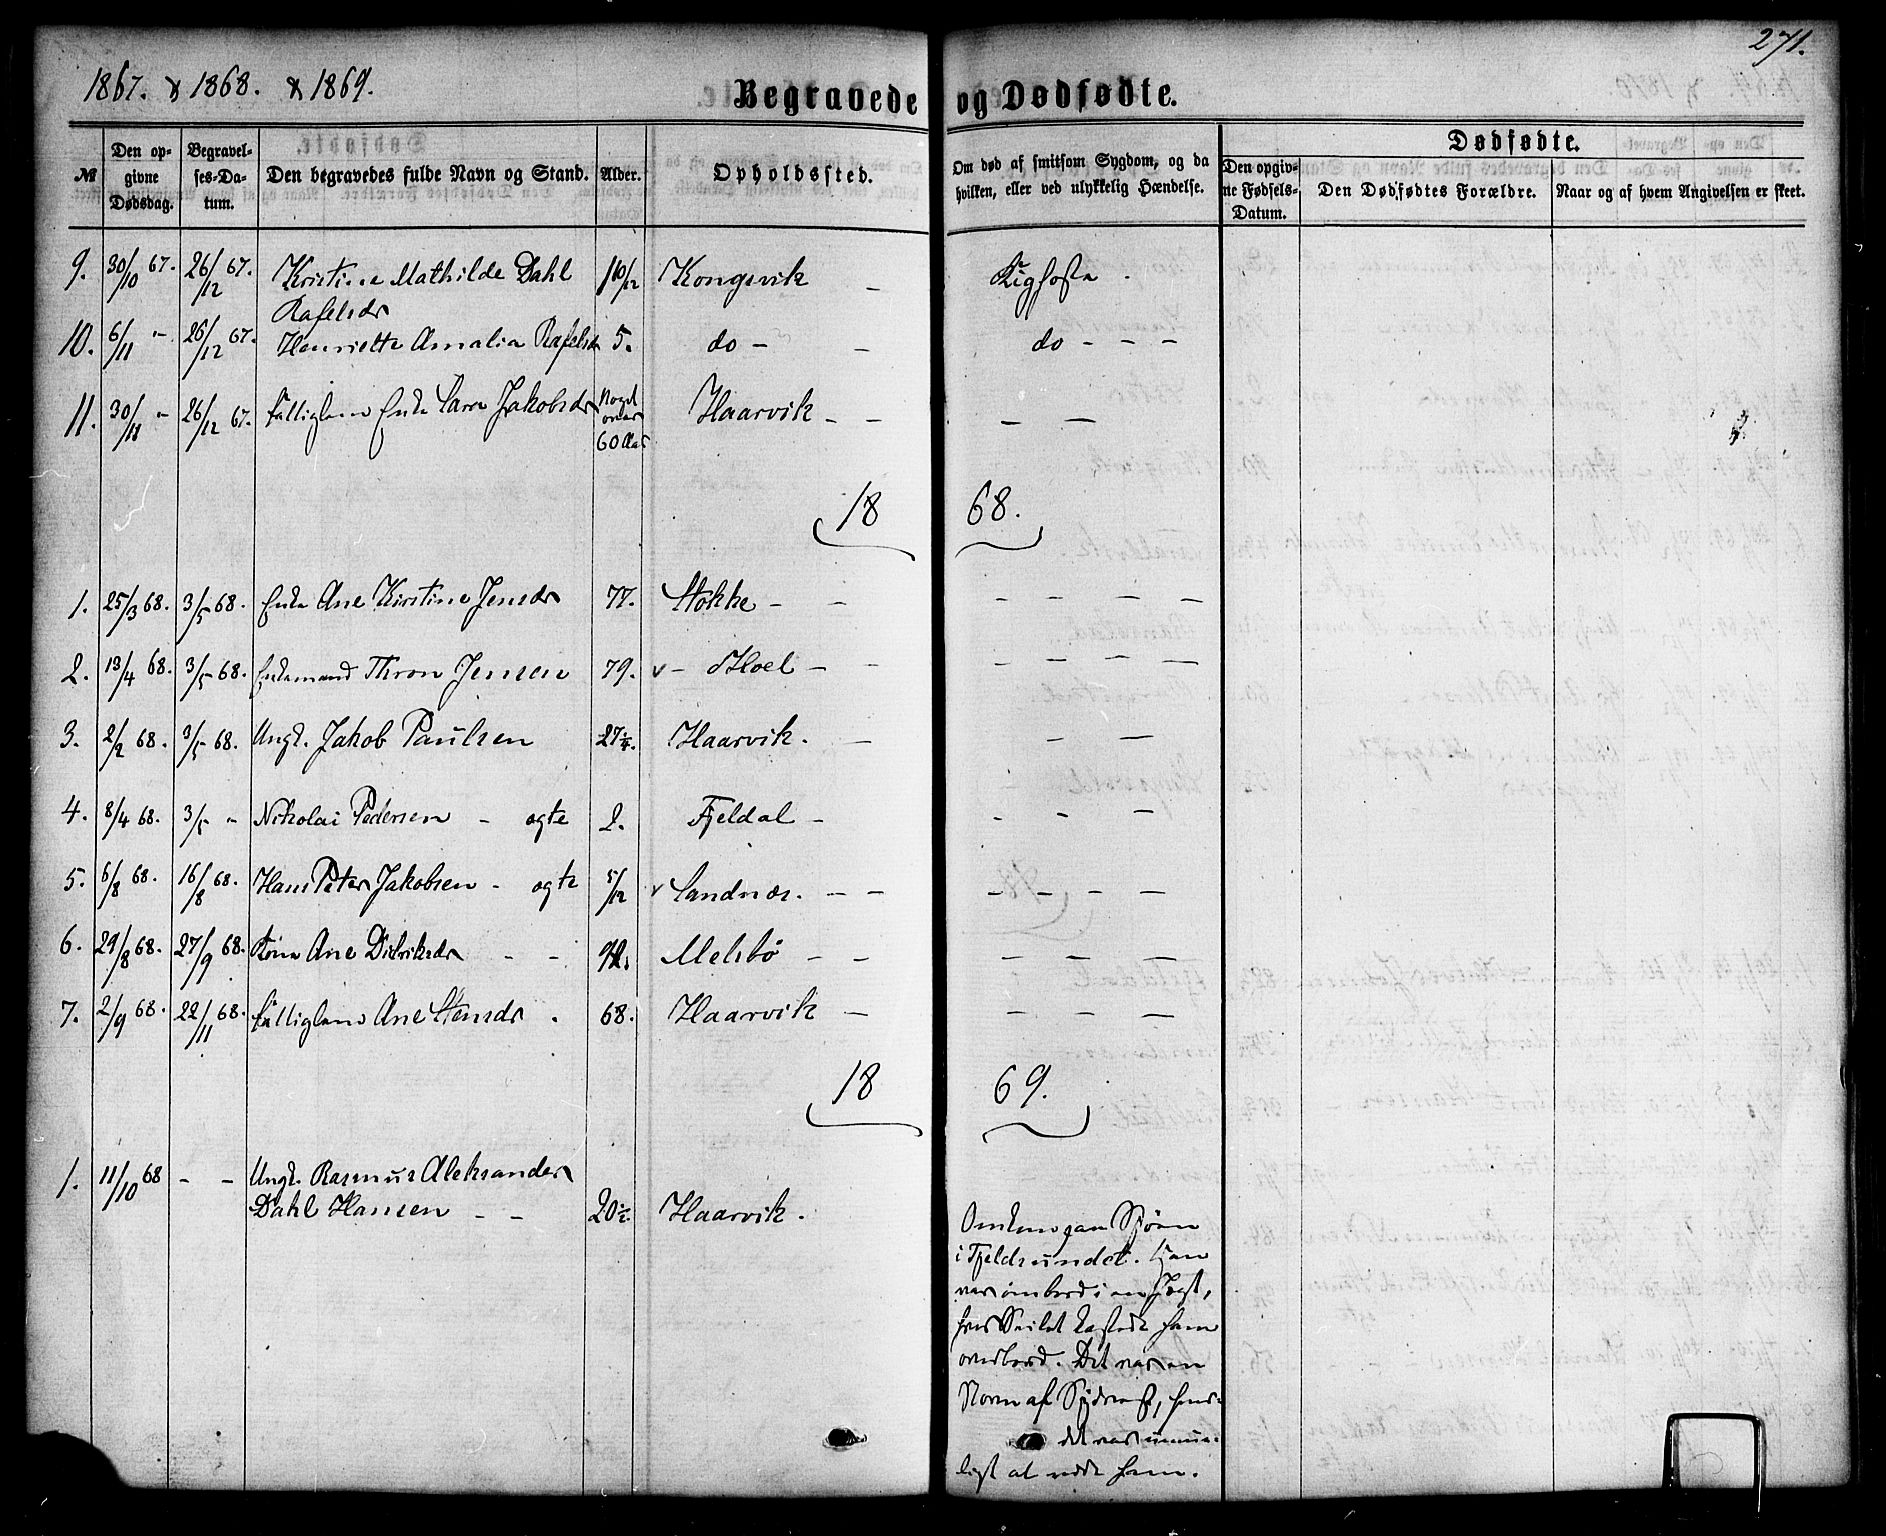 271.
1867. & 1868. & 1869.
Begravede og Dødfødte.
№
Den opgivne Dødsdag.
Begravelses-Datum.
Den begravedes fulde Navn og Stand.
Alder.
Opholdssted.
Om død af smitsom Sygdom, og da hvilken, eller ved ulykkelig Hændelse.
Dødfødte.
Den opgivne Fødsels-Datum.
Den Dødfødtes Forældre.
Naar og af hvem Angivelsen er skeet.
9. 30/10 67. 26/12 67. Kristine Mathilde Dahl 10/12 Kongsvik – Kighoste.
Rafelsdr
10. 6/11 " 26/12 67. Henriette Amalia Rafelsdr 5. do – – do – – –
11. 30/11 " 26/12 67. Fattiglem Enke Sara Jakobsdr Noget over 60 Aar Haarvik – – – –
18 68.
1. 25/3 68. 3/5 68. Enke Ane Kirstine Jensdr 77. Stokke – – – – – –
2. 13/4 68. 3/5 68. Enkemand Thron Jensen 79. v – Hoel – – – – – –
3. 2/2 68. 3/5 68. Ungk. Jakob Paulsen 27 Haarvik. – – –
4. 8/4 68. 3/5 " Nikolai Pedersen – ægte 2. Fjeldal – – – –
5. 6/8 68. 16/8 68. Hans Peter Jakobsen – ægte 5/12 v Sandnæs. – – – – – –
6. 29/8 68. 27/9 68. Kone Ane Didriksdr – – Melsbö – – – – – –
7. 2/9 68. 22/11 68. Fattiglem Ane Stensdr. 68. Haarvik – – – –
18 69.
1. 11/10 68 – – Ungk. Rasmus Aleksander
Dahl Hansen – – 20½ Haarvik.
Omkom paa Sjøen
i Fjeldsundet. Han
var ombord i en Jægt,
hvis Seilet kastede ham
overbord. Det var en
Storm af Sydvest, hvor
det var umu-
ligt at redde ham.